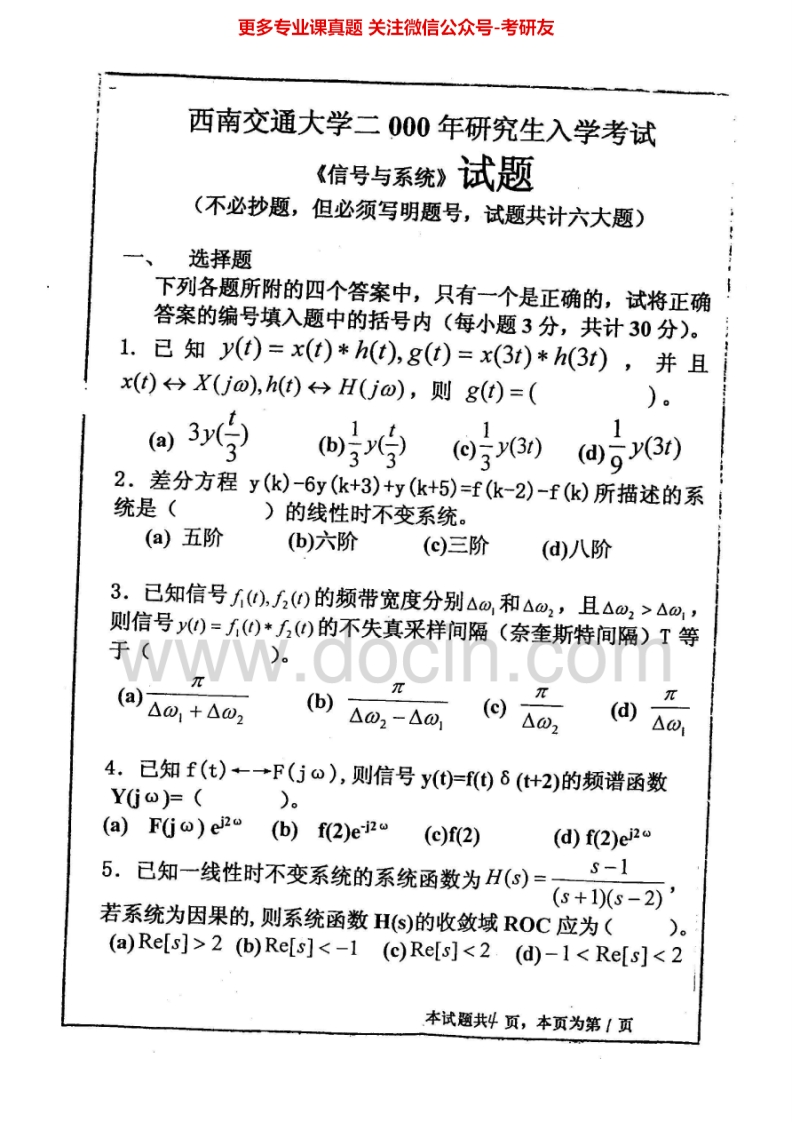 更多专业课真题 关注微信公众号-考研友
西南交通大学二000年研究生入学考试
《信号与系统》试题
（不必抄题，但必须写明题号，试题共计六大题）
一、 选择题
下列各题所附的四个答案中，只有一个是正确的，试将正确
答案的编号填入题中的括号内（每小题3分，共计30分）。
1. 已知 y(t) = x(t) * h(t), g(t) = x(3t) * h(3t) ，并且
x(t) ↔ X(jω), h(t) ↔ H(jω)，则 g(t) = ( )。
(a) 3y(t/3) (b) 1/3 y(t/3) (c) 1/3 y(3t) (d) 1/9 y(3t)
2．差分方程 y(k)-6y(k+3)+y(k+5)=f(k-2)-f(k)所描述的系
统是（ ）的线性时不变系统。
(a) 五阶 (b)六阶 (c)三阶 (d)八阶
3．已知信号 f₁(t), f₂(t) 的频带宽度分别 Δω₁ 和 Δω₂，且 Δω₂ > Δω₁，
则信号 y(t) = f₁(t) * f₂(t) 的不失真采样间隔（奈奎斯特间隔）T 等
于（ ）。
(a) π/(Δω₁ + Δω₂) (b) π/(Δω₂ − Δω₁) (c) π/Δω₂ (d) π/Δω₁
www.docin.com
4．已知 f(t)←→F(jω)，则信号 y(t)=f(t) δ (t+2)的频谱函数
Y(jω)=（ ）。
(a) F(jω) e^{j2ω} (b) f(2)e^{-j2ω} (c)f(2) (d) f(2)e^{j2ω}
5．已知一线性时不变系统的系统函数为 H(s) = (s−1)/((s+1)(s−2))，
若系统为因果的, 则系统函数 H(s)的收敛域 ROC 应为（ ）。
(a) Re[s] > 2 (b) Re[s] < −1 (c) Re[s] < 2 (d) −1 < Re[s] < 2
本试题共4页，本页为第1页